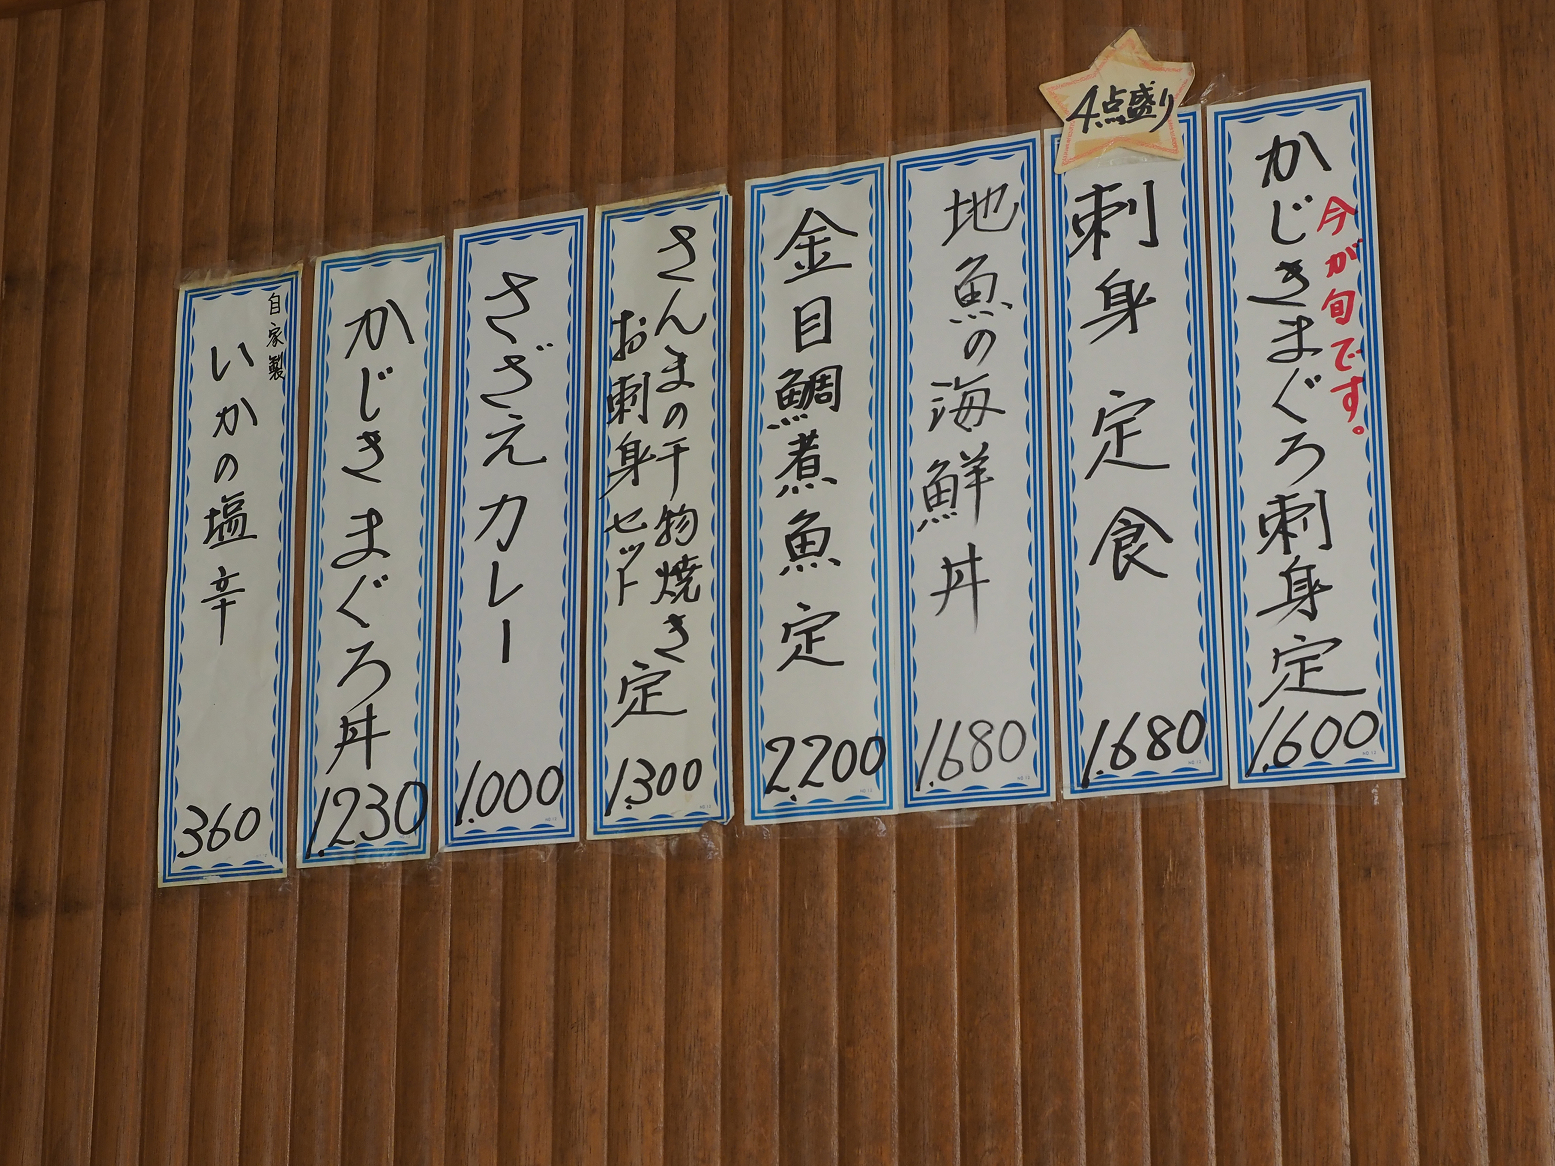 かじきまぐろ刺身定
今が旬です。
1,600
4点盛り
刺身定食
1,680
地魚の海鮮丼
1,680
金目鯛煮魚定
2,200
さんまの干物焼き
お刺身セット
定
1,300
さざえカレー
1,000
かじきまぐろ丼
1230
自家製
いかの塩辛
360